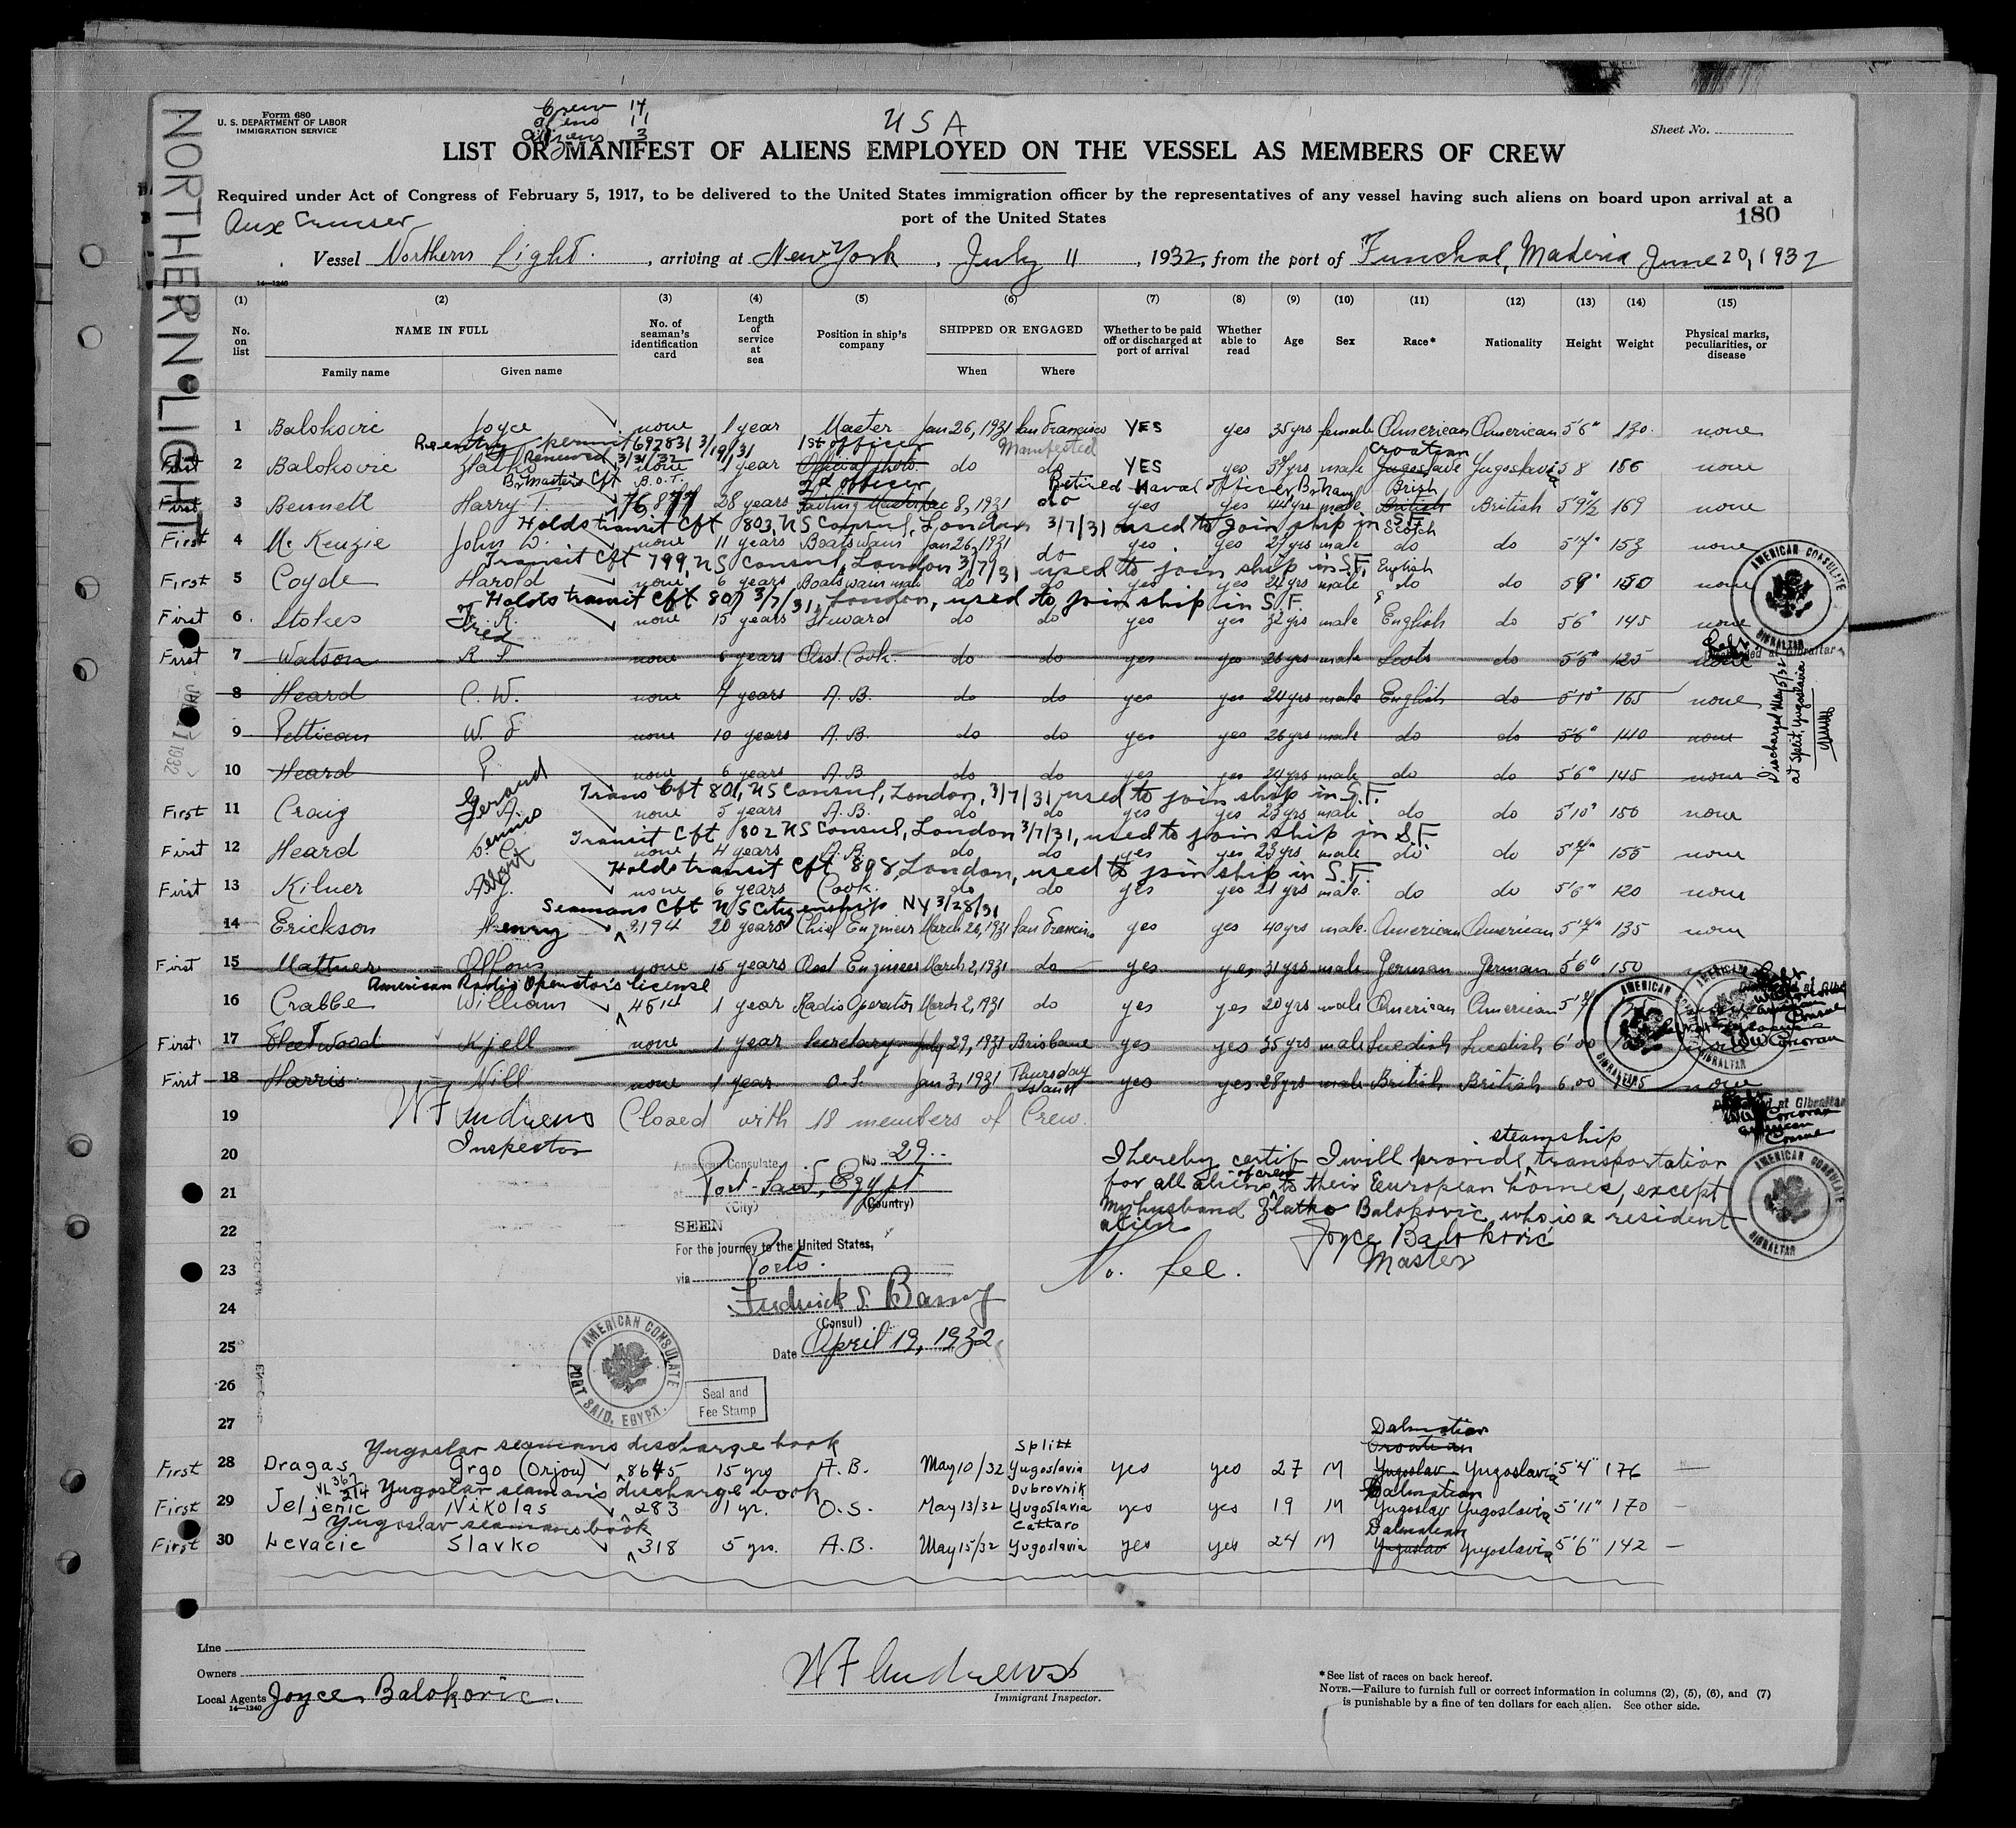 NORTHERN LIGHT
Form 680
U. S. DEPARTMENT OF LABOR
IMMIGRATION SERVICE
Crew 14
Aliens 11
Citizens 3
USA
Sheet No.
LIST OR MANIFEST OF ALIENS EMPLOYED ON THE VESSEL AS MEMBERS OF CREW
Required under Act of Congress of February 5, 1917, to be delivered to the United States immigration officer by the representatives of any vessel having such aliens on board upon arrival at a
port of the United States
180
Aux Cruiser
Vessel Northern Light. , arriving at New York , July 11 , 1932, from the port of Funchal, Maderia June 20, 1932
14—1240
(1) (2) (3) (4) (5) (6) (7) (8) (9) (10) (11) (12) (13) (14) (15)
No. on list NAME IN FULL No. of seaman's identification card Length of service at sea Position in ship's company SHIPPED OR ENGAGED Whether to be paid off or discharged at port of arrival Whether able to read Age Sex Race* Nationality Height Weight Physical marks, peculiarities, or disease
Family name Given name When Where
1 Balokovic Joyce none 1 year Master Jan 26, 1931 San Francisco YES yes 35 yrs female American American 5'6" 130 none
Reentry permit 697831 3/19/31 1st officer Manifested Croatian
Renewed 3/31/32
First 2 Balokovic Zlatko none 1 year do do YES yes 37 yrs male Jugoslave Yugoslavia 5 8 156 none
Br Masters Cft B.O.T. 2d officer Retired Naval officer, Br Navy British
First 3 Bennett Harry T. 76877 28 years Sailing Master Dec 8, 1931 do yes yes 44 yrs male British British 5'9½" 169 none
Holds transit Cft 803, US Consul, London 3/7/31 used to join ship in S.F. Scotch
First 4 McKenzie John W. none 11 years Boatswain Jan 26, 1931 do yes yes 27 yrs male do do 5'7" 153 none
Transit Cft 799, US Consul, London 3/7/31 used to join ship in S.F. English
First 5 Coyde Harold none 6 years Boatswain mate do do yes yes 24 yrs male do do 5 9" 150 none
Holds transit Cft 807 3/7/31, London, used to join ship in S.F.
First 6 Stokes Fred R. none 15 years Steward do do yes yes 32 yrs male English do 5'6" 145 none
First 7 Watson R none 6 years Asst. Cook. do do yes yes 26 yrs male Scots do 5'5" 125 none
8 Heard C. W. none 7 years A. B. do do yes yes 24 yrs male English do 5'10" 165 none
9 Pettican W. none 10 years A. B. do do yes yes 26 yrs male do do 5'6" 140 none
10 Heard P. none 6 years A. B. do do yes yes 24 yrs male do do 5'6" 145 none
Trans Cft 801, US Consul, London, 3/7/31 used to join ship in S.F.
First 11 Craig Gerard A. none 5 years A. B. do do yes yes 23 yrs male do do 5'10" 150 none
Transit Cft 802 US Consul, London 3/7/31, used to join ship in S.F.
First 12 Heard Dennis C. none 4 years A. B. do do yes yes 23 yrs male do do 5'7" 155 none
Holds transit Cft 808, London, used to join ship in S.F.
First 13 Kilner Albert J. none 6 years Cook. do do yes yes 21 yrs male do do 5'6" 120 none
Seamans Cft US Citizenship NY 3/28/31
14 Erickson Henry 3194 20 years Chief Engineer March 26, 1931 San Francisco yes yes 40 yrs male American American 5'7" 135 none
First 15 Mattner Alfons none 15 years Asst Engineer March 2, 1931 do yes yes 31 yrs male German German 5'6" 150
American Radio Operator's license
16 Crabbe William 4514 1 year Radio Operator March 2, 1931 do yes yes 20 yrs male American American
First 17 Fleetwood Kjell none 1 year Secretary July 29, 1931 Brisbane yes yes 35 yrs male Swedish Swedish 6'00
First 18 Harris Will none 1 year O. S. Jan 3, 1931 Thursday Island yes yes 28 yrs male British British 6.00 none
19 W F Andrews Closed with 18 members of Crew
Inspector
AMERICAN CONSULATE GIBRALTAR
Discharged May 5/32
at Split, Yugoslavia
Discharged at Gibraltar
W W Corcoran
American
Consul
20 American Consulate No 29
21 at Port-Said, Egypt
(City) (Country)
22 SEEN
For the journey to the United States,
23 via Ports.
24 Fredrick S. Barny
(Consul)
25 Date April 19, 1932
AMERICAN CONSULATE
PORT SAID, EGYPT.
Seal and
Fee Stamp
26
27
No. fee.
I hereby certify I will provide steamship transportation
for all aliens of crew to their European homes, except
my husband Zlatko Balokovic who is a resident
alien
Joyce Balokovic
Master
Yugoslav seamans discharge book Split Dalmatian
Croatian
First 28 Dragas Grgo (Orjou) 8645 15 yrs A. B. May 10/32 Yugoslavia yes yes 27 M Yugoslav Yugoslavia 5'4" 176 —
Yugoslav seaman's discharge book Dubrovnik Dalmatian
First 29 Jeljenic Nikolas 283 1 yr. O. S. May 13/32 Yugoslavia yes yes 19 M Yugoslav Yugoslavia 5'11" 170 -
Yugoslav seamans book Cattaro Dalmatian
First 30 Levacic Slavko 318 5 yrs. A. B. May 15/32 Yugoslavia yes yes 24 M Yugoslav Yugoslavia 5'6" 142 -
Line
Owners
Local Agents Joyce Balokovic.
14—1240
W F Andrews
Immigrant Inspector.
*See list of races on back hereof.
NOTE.—Failure to furnish full or correct information in columns (2), (5), (6), and (7)
is punishable by a fine of ten dollars for each alien. See other side.